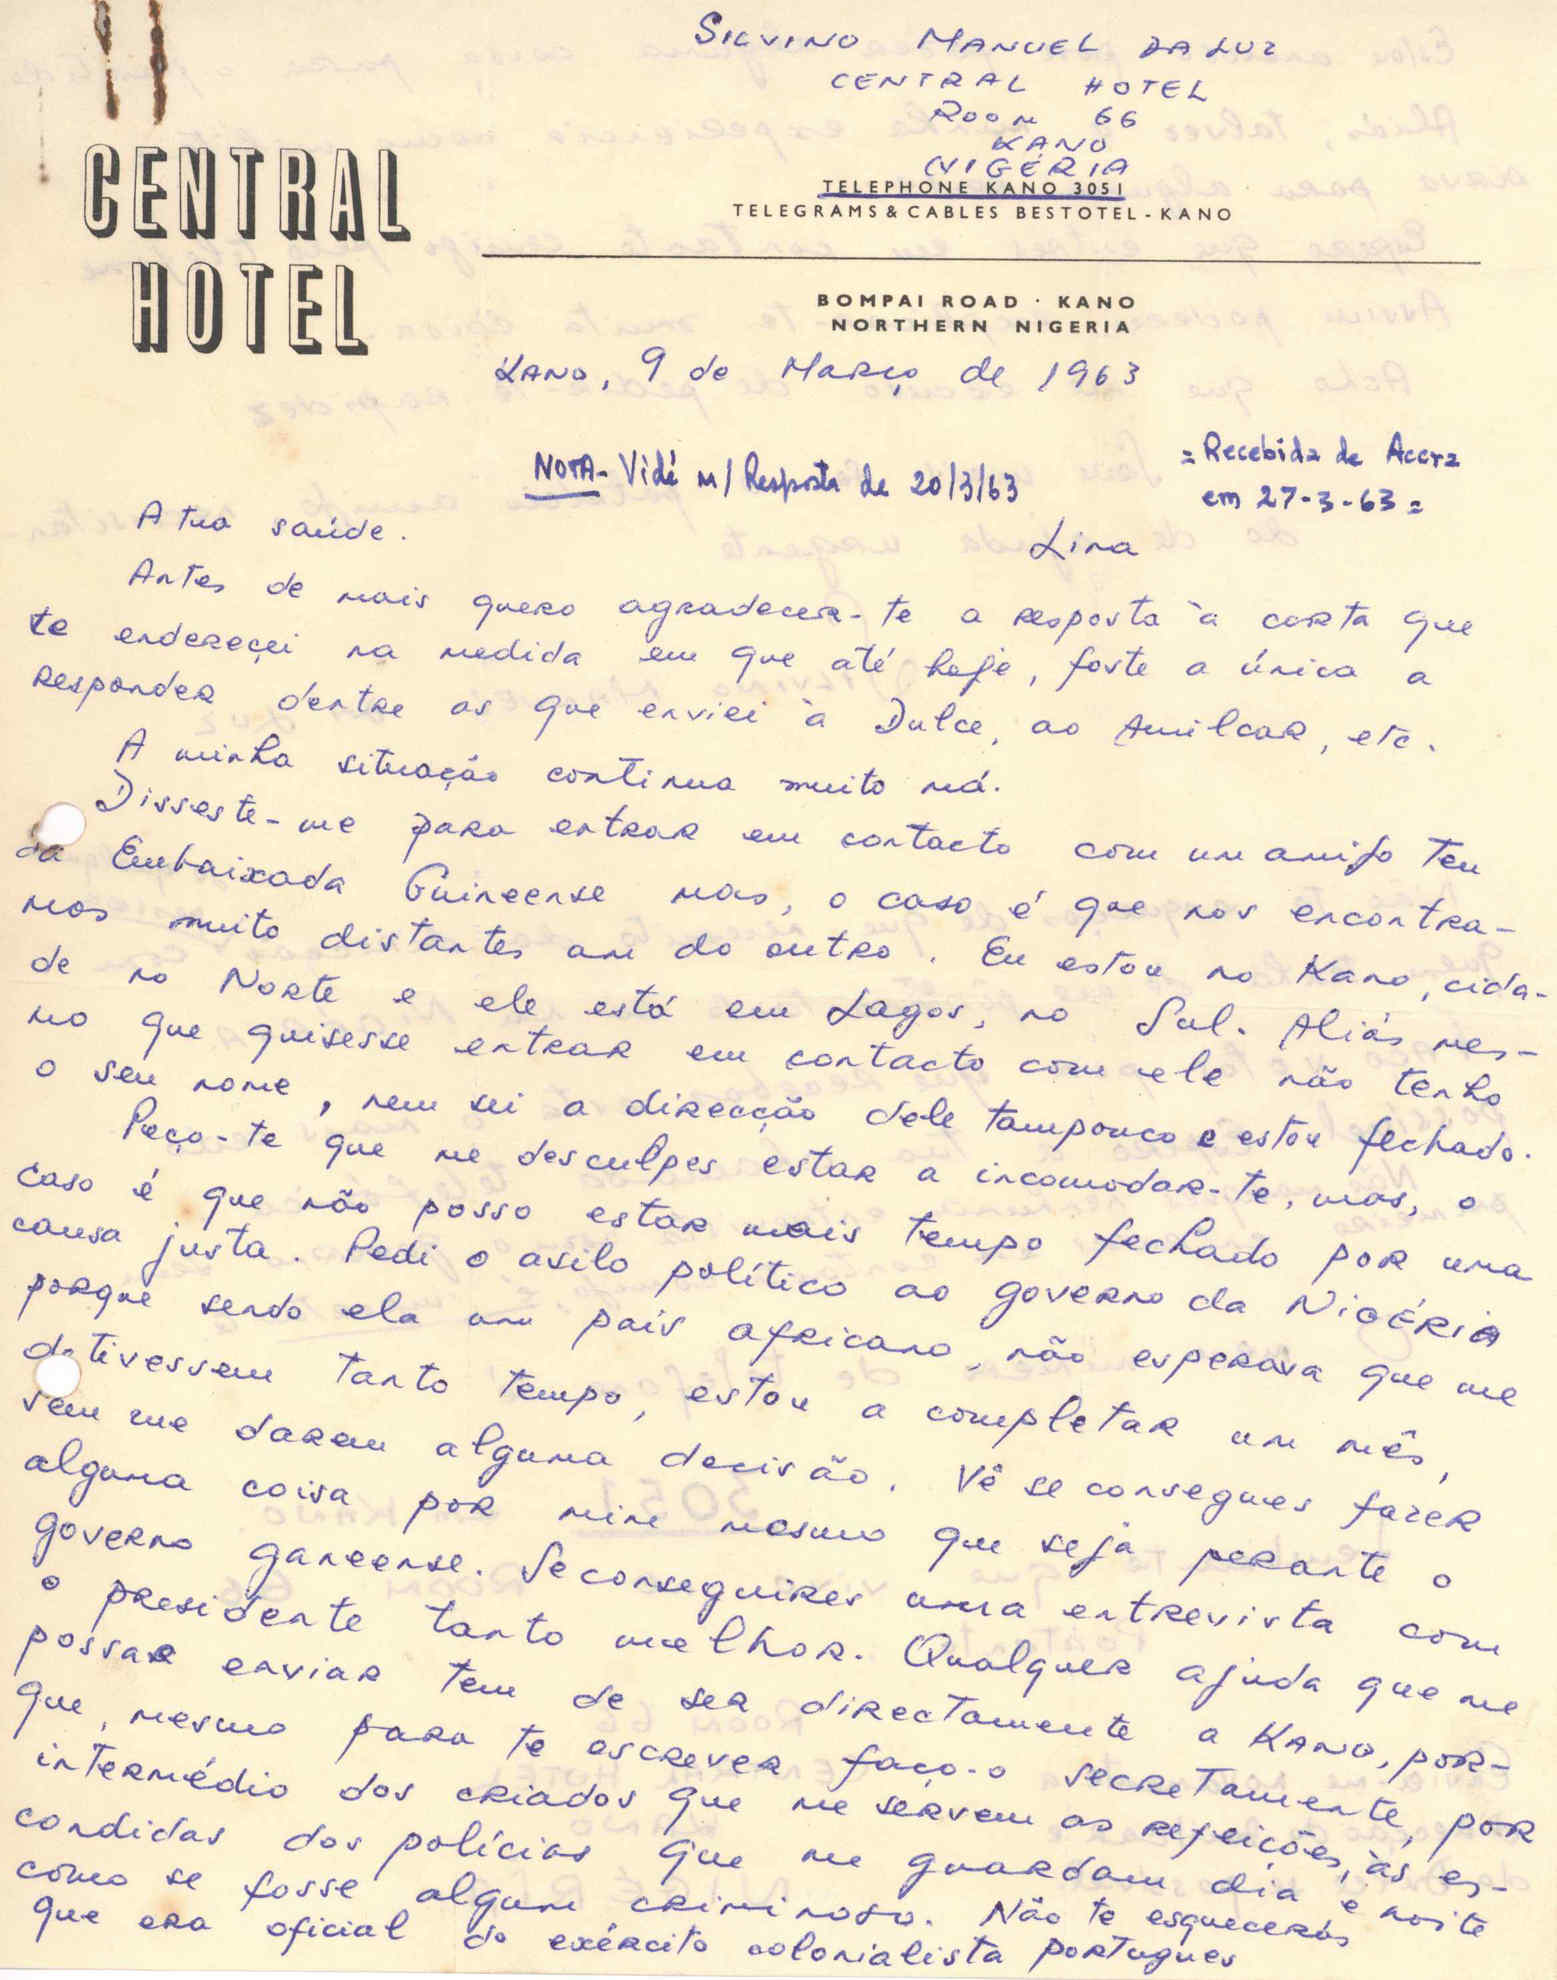 SILVINO MANUEL DA LUZ
CENTRAL HOTEL
ROOM 66
KANO
NIGÉRIA
CENTRAL
HOTEL
TELEPHONE KANO 3051
TELEGRAMS & CABLES BESTOTEL - KANO
BOMPAI ROAD · KANO
NORTHERN NIGERIA
KANO, 9 de Março de 1963
NOTA - Vidé m/ Resposta de 20/3/63
= Recebida de Accra
em 27-3-63 =
Lima
A tua saúde.
Antes de mais quero agradecer-te a resposta à carta que
te endereçei na medida em que até hoje, foste a única a
responder dentre as que enviei à Dulce, ao Amilcar, etc.
A minha situação continua muito má.
Disseste-me para entrar em contacto com um amigo teu
da Embaixada Guineense mas, o caso é que nos encontra-
mos muito distantes um do outro. Eu estou no Kano, cida-
de no Norte e ele está em Lagos, no Sul. Aliás mes-
mo que quisesse entrar em contacto com ele não tenho
o seu nome, nem sei a direcção dele tampouco e estou fechado.
Peço-te que me desculpes estar a incomodar-te, mas, o
caso é que não posso estar mais tempo fechado por uma
causa justa. Pedi o asilo político ao governo da NIGÉRIA
porque sendo ela um país africano, não esperava que me
detivessem tanto tempo, estou a completar um mês,
sem me darem alguma decisão. Vê se consegues fazer
alguma coisa por mim mesmo que seja perante o
governo ganeense. Se conseguires uma entrevista com
o presidente tanto melhor. Qualquer ajuda que me
possas enviar tem de ser directamente a KANO, por-
que, mesmo para te escrever faço-o secretamente, por
intermédio dos criados que me servem as refeições, às es-
condidas dos polícias que me guardam dia e noite
como se fosse algum criminoso. Não te esquecerás
que era oficial do exército colonialista portugues